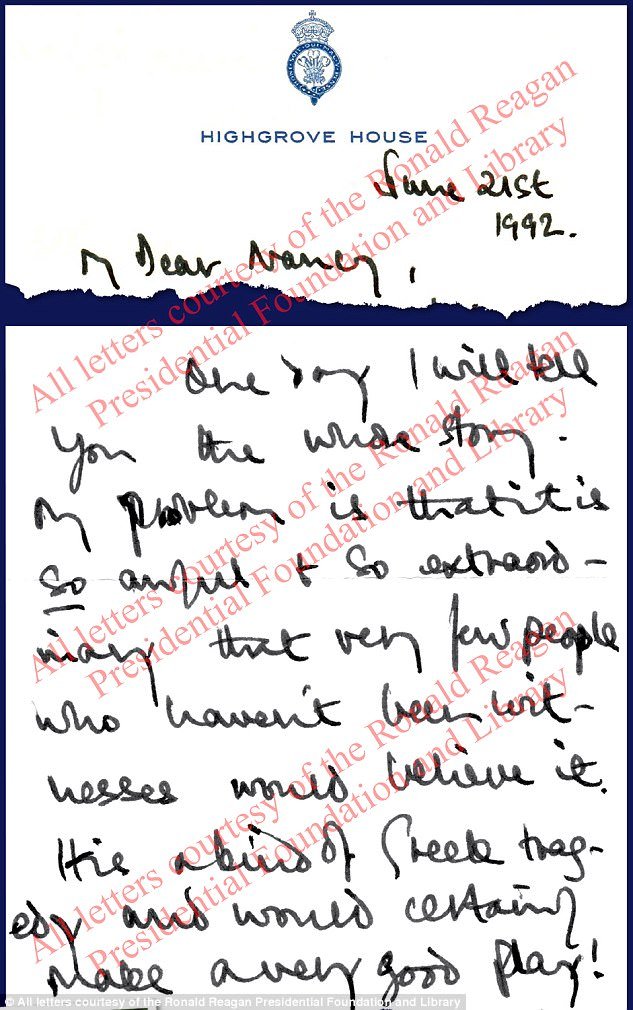 HIGHGROVE HOUSE
June 21st
1992.
My Dear Nancy,
One day I will tell
you the whole story.
My problem is that it is
so awful + so extraord-
inary that very few people
who haven't been wit-
nesses would believe it.
It is a kind of Greek trag-
edy and would certainly
make a very good play!
All letters courtesy of the Ronald Reagan
Presidential Foundation and Library
All letters courtesy of the Ronald Reagan
Presidential Foundation and Library
All letters courtesy of the Ronald Reagan
Presidential Foundation and Library
© All letters courtesy of the Ronald Reagan Presidential Foundation and Library